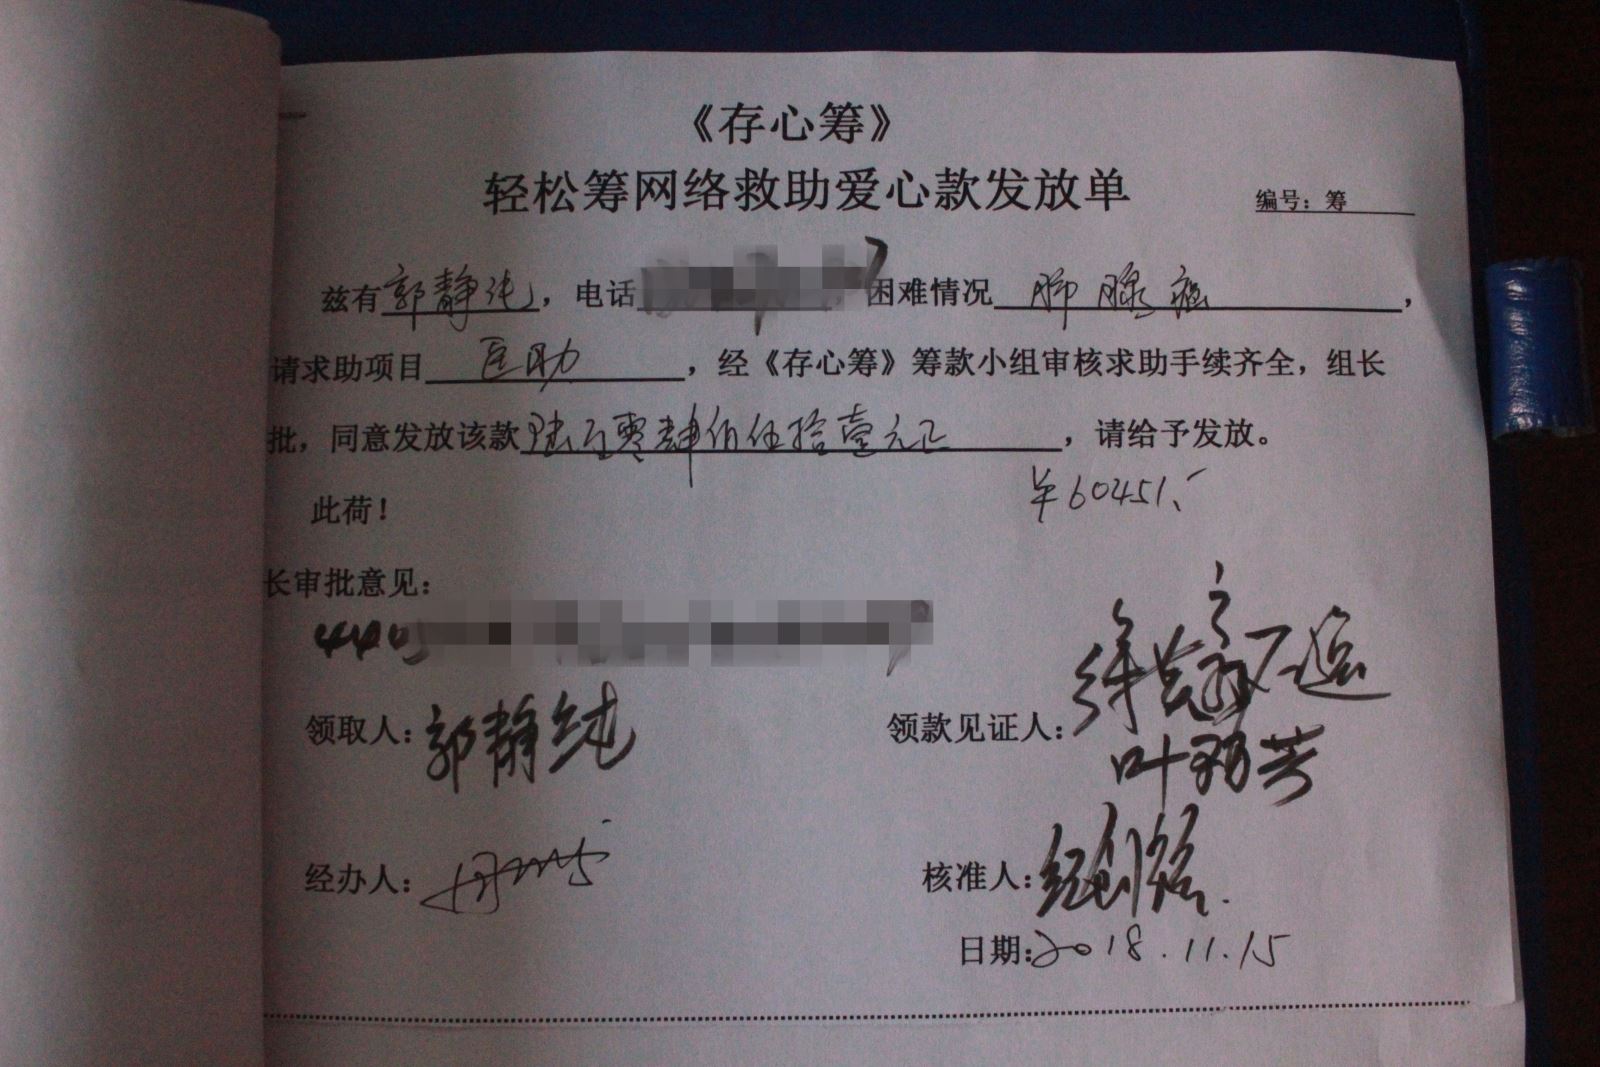 《存心筹》
轻松筹网络救助爱心款发放单
编号：筹
兹有郭静纯，电话 困难情况 肺腺癌，
请求助项目 医助，经《存心筹》筹款小组审核求助手续齐全，组长
批，同意发放该款陆万零肆佰伍拾壹元正，请给予发放。
¥60451.-
此荷！
长审批意见：
440
领取人：郭静纯 领款见证人：
叶
经办人： 核准人：
日期：2018.11.15